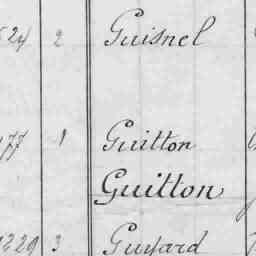 524 2 Guisnel
177 1 Guitton
Guitton
1229 3 Guyard